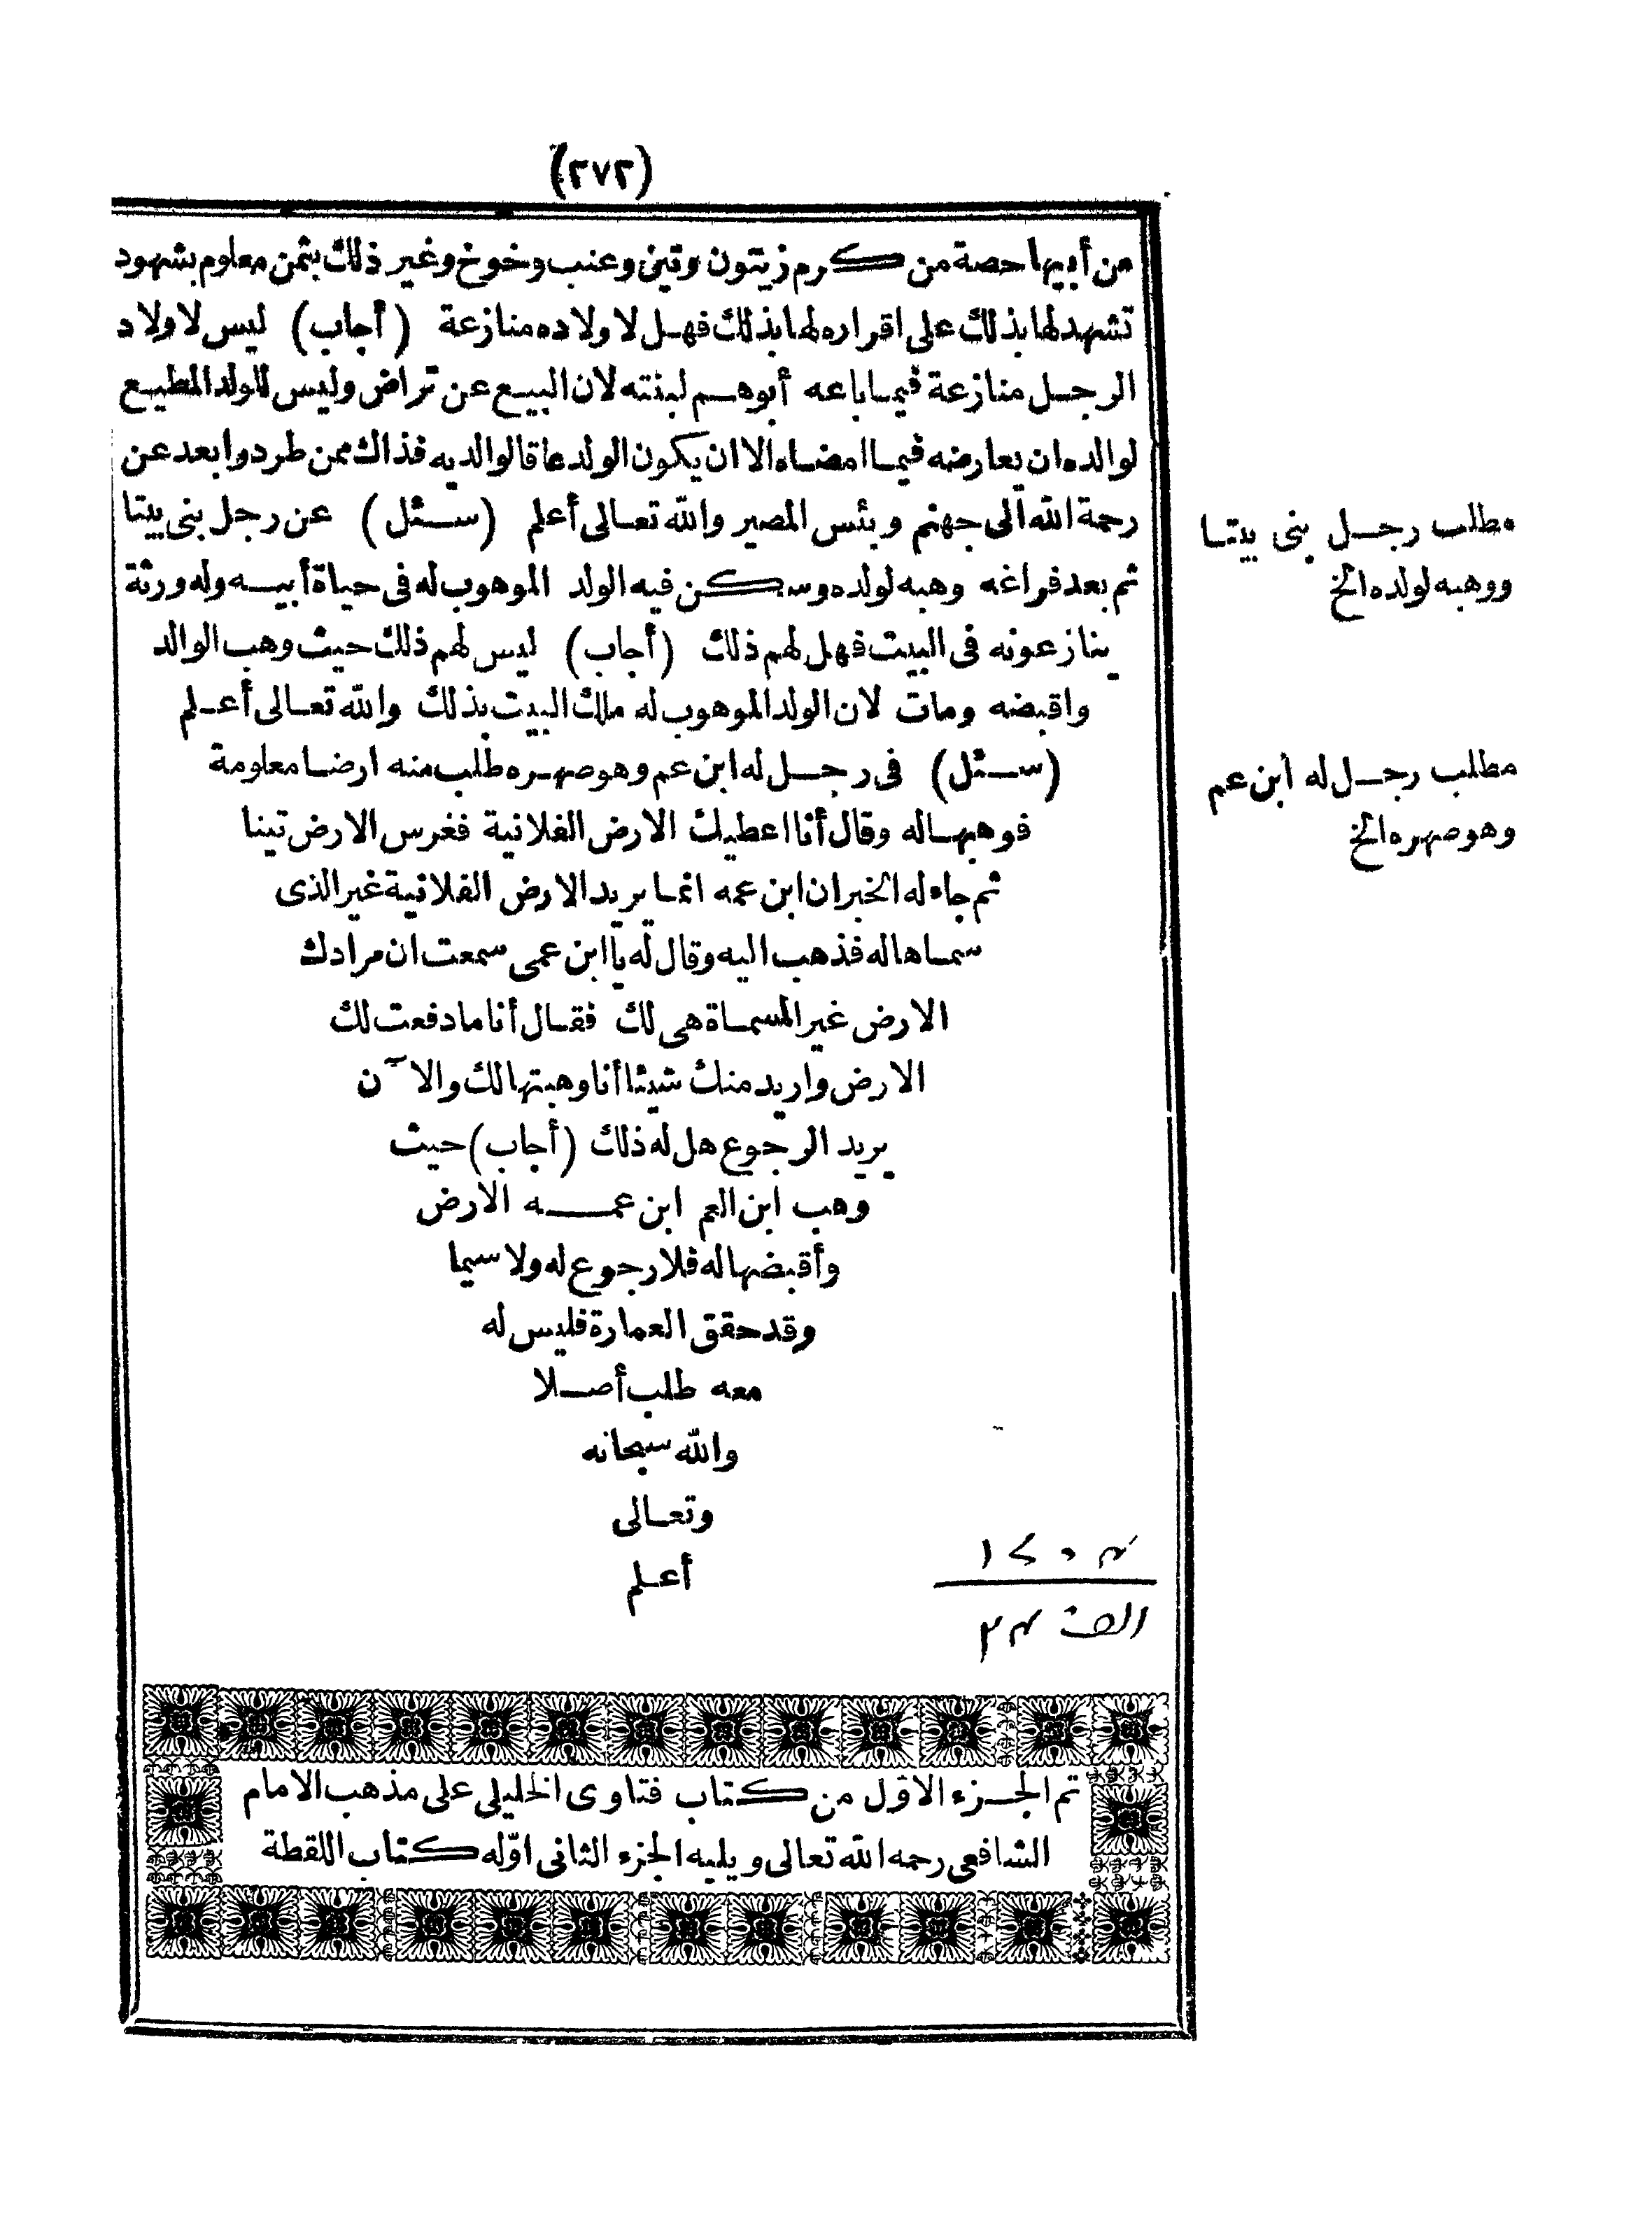 (٢٧٢)
من أبيها حصة من كرم زيتون وتين وعنب وخوخ وغير ذلك بثمن معلوم بشهود
تشهد لها بذلك على اقراره لها بذلك فهل لاولاده منازعة (أجاب) ليس لاولاد
الرجل منازعة فيما باعه أبوهم لبنته لان البيع عن تراض وليس للولد المطيع
لوالده ان يعارضه فيما امضاه الا ان يكون الولد عاقا لوالديه فذاك ممن طرد وابعد عن
رحمة الله الى جهنم وبئس المصير والله تعالى أعلم (سئل) عن رجل بنى بيتا
ثم بعد فراغه وهبه لولده وسكن فيه الولد الموهوب له فى حياة أبيه وله ورثة
ينازعونه فى البيت فهل لهم ذلك (أجاب) ليس لهم ذلك حيث وهب الوالد
واقبضه ومات لان الولد الموهوب له ملك البيت بذلك والله تعالى أعلم
(سئل) فى رجل له ابن عم وهو صهره طلب منه ارضا معلومة
فوهبها له وقال أنا اعطيك الارض الفلانية فغرس الارض تينا
ثم جاء له الخبر ان ابن عمه انما يريد الارض الفلانية غير الذى
سماها له فذهب اليه وقال له يا ابن عمى سمعت ان مرادك
الارض غير المسماة هى لك فقال أنا ما دفعت لك
الارض واريد منك شيئا أنا وهبتها لك والآن
يريد الرجوع هل له ذلك (أجاب) حيث
وهب ابن العم ابن عمه الارض
وأقبضها له فلا رجوع له ولا سيما
وقد حقق العمارة فليس له
معه طلب أصلا
والله سبحانه
وتعالى
أعلم
مطلب رجل بنى بيتا
ووهبه لولده الخ
مطلب رجل له ابن عم
وهو صهره الخ
تم الجزء الاوّل من كتاب فتاوى الخليلى على مذهب الامام
الشافعى رحمه الله تعالى ويليه الجزء الثانى اوّله كتاب اللقطة